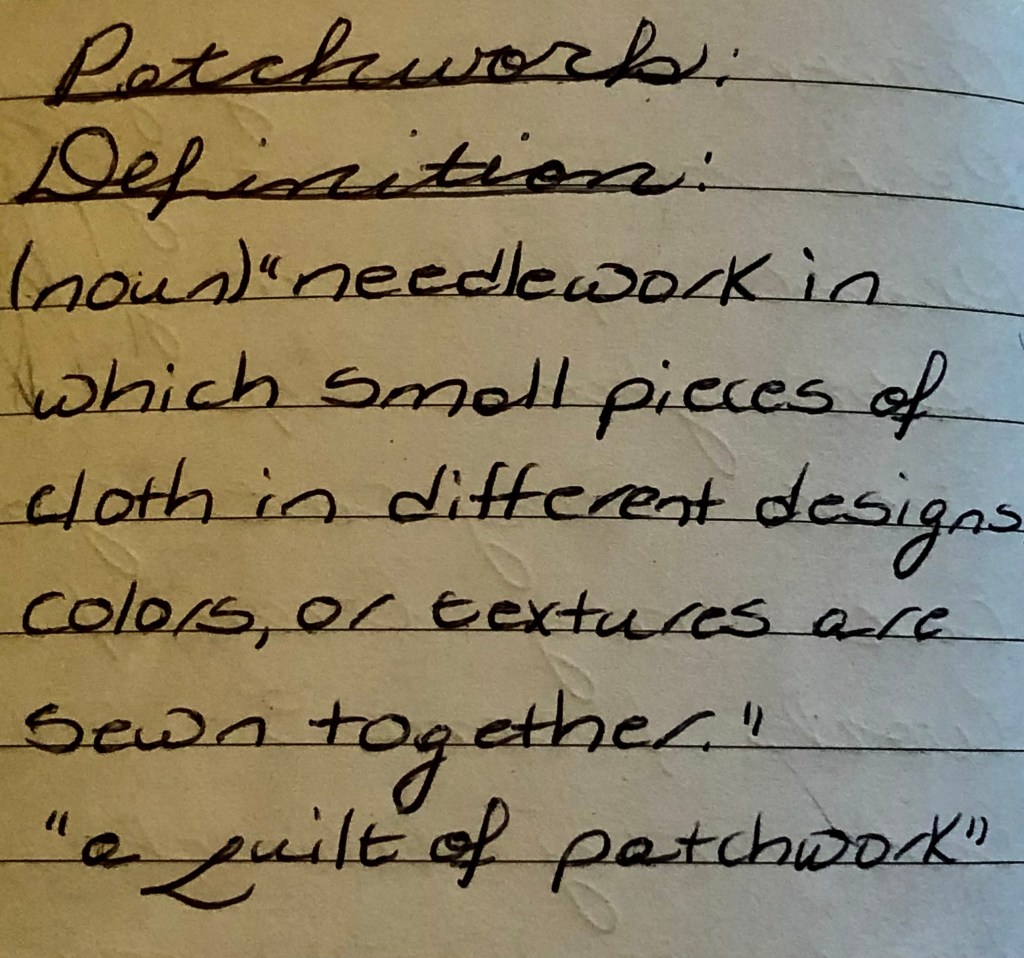 Patchwork:
Definition:
(noun) "needlework in
which small pieces of
cloth in different designs
colors, or textures are
sewn together."
"a quilt of patchwork"